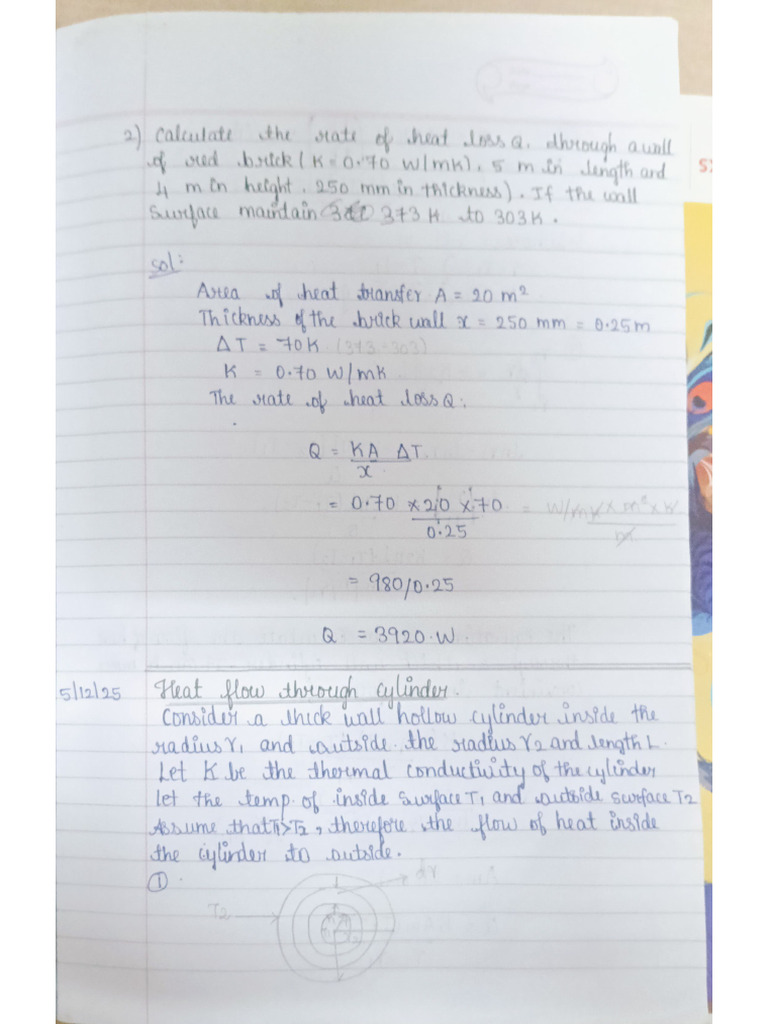 2) Calculate the rate of heat loss Q, through a wall
of red brick (K = 0.70 W/mK), 5 m in length and
4 m in height, 250 mm in thickness). If the wall
surface maintain 373 K to 303 K.
Sol:
Area of heat transfer A = 20 m²
Thickness of the brick wall x = 250 mm = 0.25m
ΔT = 70K (373-303)
K = 0.70 W/mK
The rate of heat loss Q:
Q = KA ΔT
x
= 0.70 × 20 × 70 = W/mK × m² × K
0.25 m
= 980/0.25
Q = 3920 W
5/12/25 Heat flow through cylinder.
Consider a thick wall hollow cylinder inside the
radius r1 and outside the radius r2 and length L.
Let K be the thermal conductivity of the cylinder
let the temp. of inside surface T1 and outside surface T2
Assume that T1>T2, therefore the flow of heat inside
the cylinder to outside.
① dr
T2
S